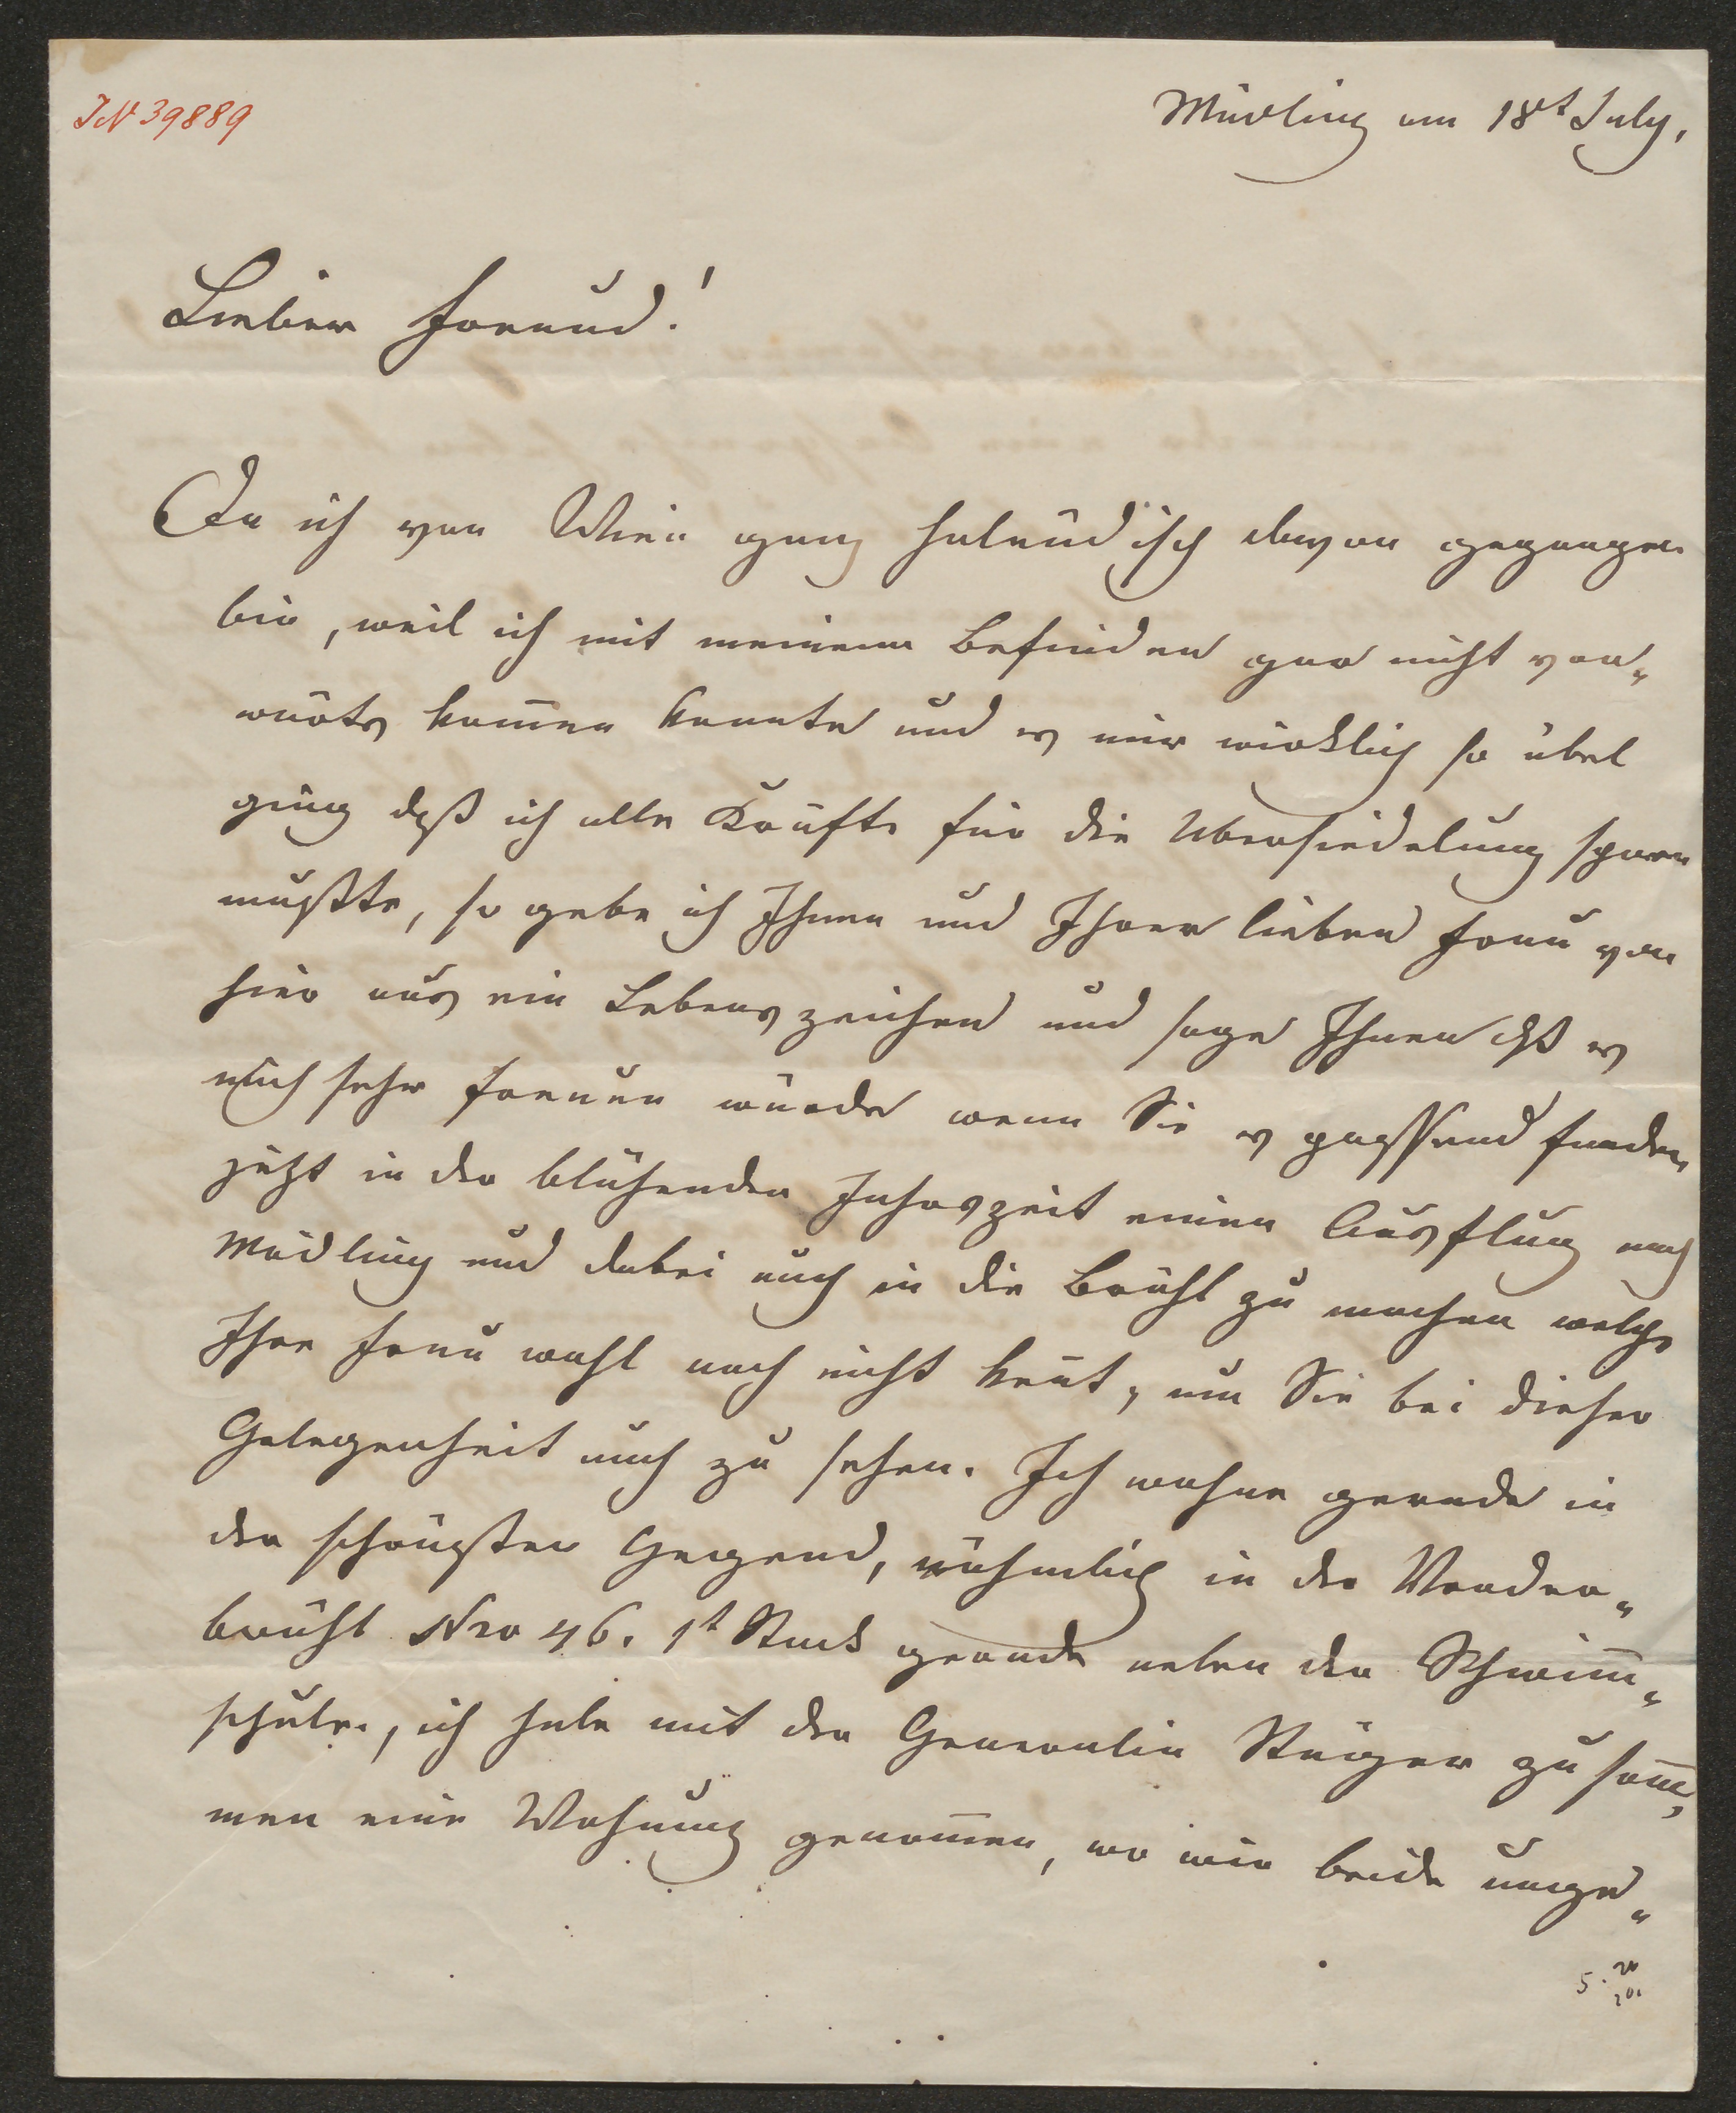 IN 39889
Mödling am 18t July.
Lieber Freund!
Da ich von Wien ganz holländisch davon gegangen
bin, weil ich mit meinem Befinden gar nicht vor„
wärts kom̅en konnte und es mir wirklich so übel
ging daß ich alle Kräfte für die Übersiedelung sparen
mußte, so gebe ich Ihnen und Ihrer lieben Frau von
hier aus ein Lebenszeichen und sage Ihnen daß es
mich sehr freuen würde wenn Sie es passend fanden
jetzt in der blühenden Jahrszeit einen Ausflug nach
Mödling und dabei auch in die Brühl zu machen welche
Ihre Frau wohl noch nicht ken̅t, um Sie bei dieser
Gelegenheit auch zu sehen. Ich wohne gerade in
der schönsten Gegend, nähmlich in der Vorder„
brühl Nro 46. 1t Stock gerade neben der Schwim̅„
schule, ich habe mit der Generalin Steiger zusam̅„
men eine Wohnung genom̅en, wo wir beide unge„